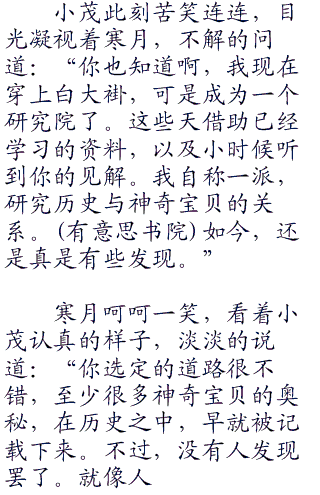 小茂此刻苦笑连连，目
光凝视着寒月，不解的问
道：“你也知道啊，我现在
穿上白大褂，可是成为一个
研究院了。这些天借助已经
学习的资料，以及小时候听
到你的见解。我自称一派，
研究历史与神奇宝贝的关
系。(有意思书院) 如今，还
是真是有些发现。”
寒月呵呵一笑，看着小
茂认真的样子，淡淡的说
道：“你选定的道路很不
错，至少很多神奇宝贝的奥
秘，在历史之中，早就被记
载下来。不过，没有人发现
罢了。就像人